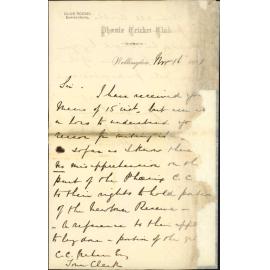 CLUB ROOMS
Phœnix Cricket Club
Wellington, Nov 16
Sir
I have received your
Memo of 15 inst, but am at
a loss to understand your
reason for writing
so far as I know there
no misapprehension on the
part of the Phœnix C.C.
to their rights to hold portion
of the Newtown Reserve —
A reference to their
to lay down a portion of the
C.C.
Town Clerk